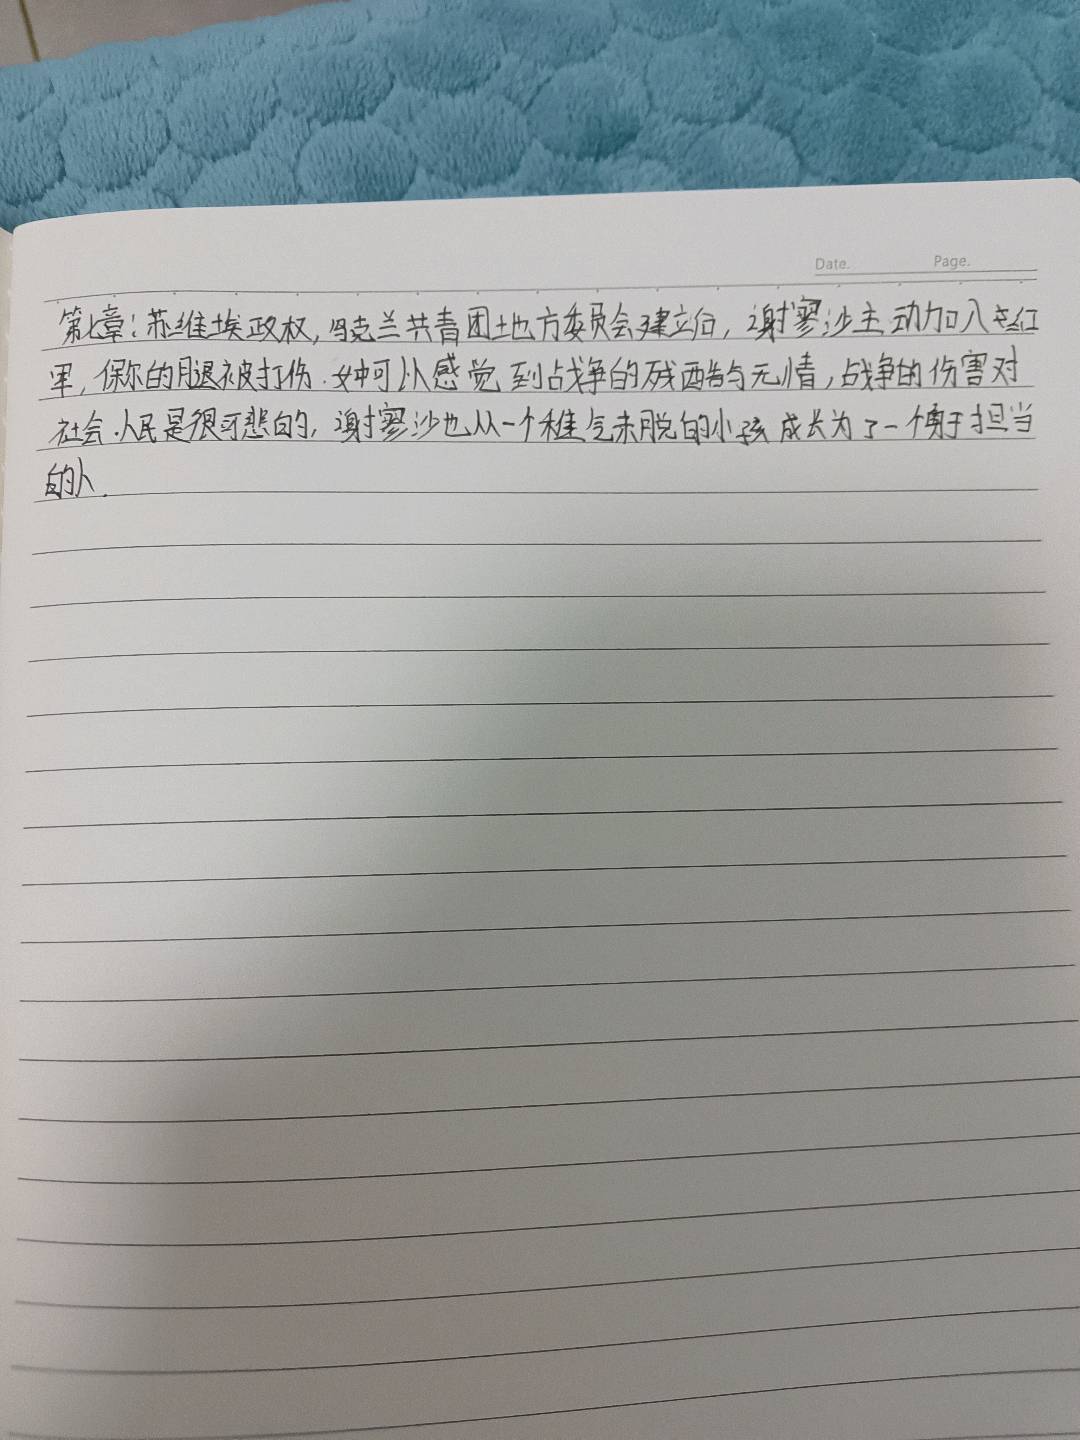 Date. Page.
第七章：苏维埃政权，乌克兰共青团地方委员会建立后，谢寥沙主动加入红
军，保尔的腿被打伤．可以感觉到战争的残酷与无情，战争的伤害对
社会．人民是很可悲的，谢寥沙也从一个稚气未脱的小孩成长为了一个勇于担当
的人．